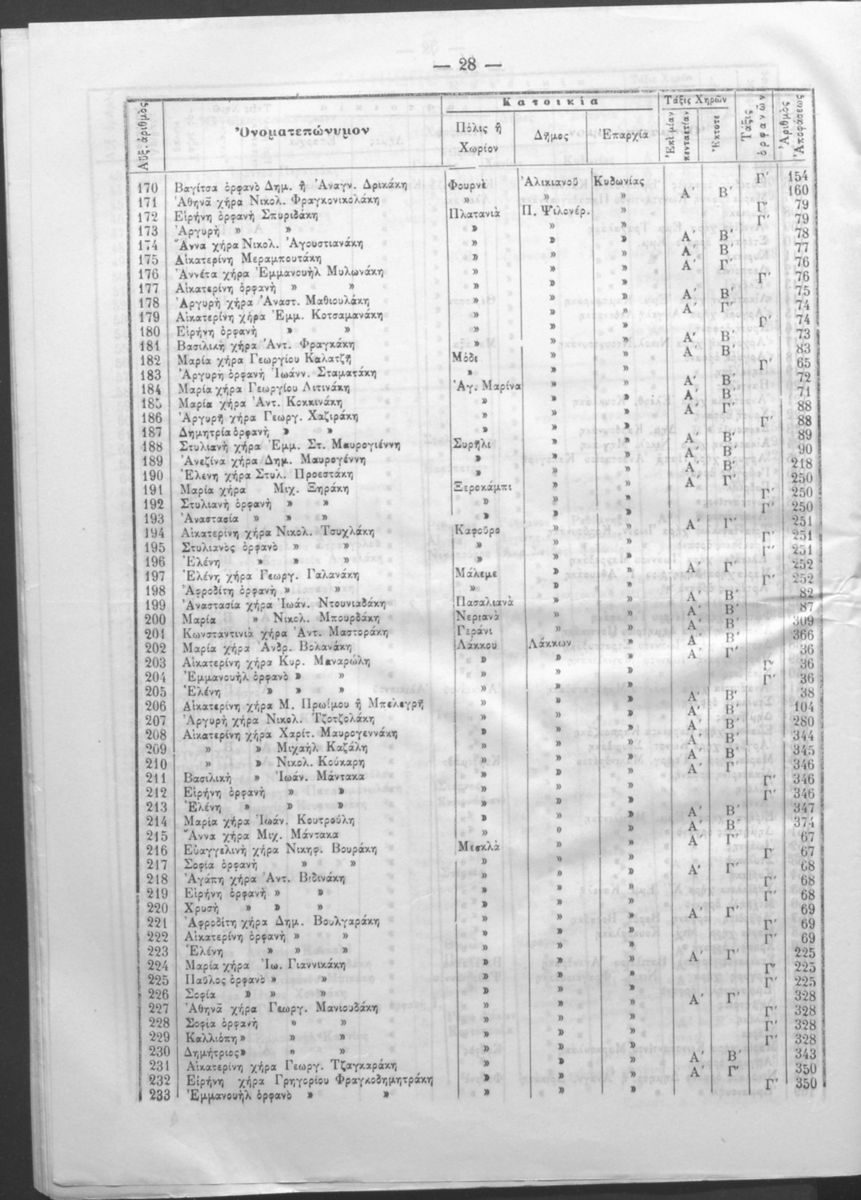 — 28 —
Αὔξ. ἀριθμὸς Ὀνοματεπώνυμον Κατοικία Τάξις Χηρῶν Τάξις ὀρφανῶν Ἀριθμὸς Ἀποφάσεως
Πόλις ἢ Χωρίον Δῆμος Ἐπαρχία Ἐπὶ μίαν πενταετίαν Ἔκτοτε
170 Βαγίτσα ὀρφανὸ Δημ. ἢ Ἀναγν. Δρικάκη Φουρνὲ Ἀλικιανοῦ Κυδωνίας Γʹ 154
171 Ἀθηνᾶ χήρα Νικολ. Φραγκονικολάκη » » » Αʹ Βʹ 160
172 Εἰρήνη ὀρφανὴ Σπυριδάκη Πλατανιὰ Π. Ψιλονέρ. » Γʹ 79
173 Ἀργυρὴ » » » » » Γʹ 79
174 Ἄννα χήρα Νικολ. Ἀγουστιανάκη » » » Αʹ Βʹ 78
175 Αἰκατερίνη Μεραμπουτάκη » » » Αʹ Βʹ 77
176 Ἀννέτα χήρα Ἐμμανουὴλ Μυλωνάκη » » » Αʹ Γʹ 76
177 Αἰκατερίνη ὀρφανὴ » » » » » Γʹ 76
178 Ἀργυρὴ χήρα Ἀναστ. Μαθιουλάκη » » » Αʹ Βʹ 75
179 Αἰκατερίνη χήρα Ἐμμ. Κοτσαμανάκη » » » Αʹ Γʹ 74
180 Εἰρήνη ὀρφανὴ » » » » » Γʹ 74
181 Βασιλικὴ χήρα Ἀντ. Φραγκάκη » » » Αʹ Βʹ 73
182 Μαρία χήρα Γεωργίου Καλατζῆ Μόδι » » Αʹ Βʹ 83
183 Ἀργυρὴ ὀρφανὴ Ἰωάνν. Σταματάκη » » » Γʹ 65
184 Μαρία χήρα Γεωργίου Λιτινάκη Ἁγ. Μαρίνα » » Αʹ Βʹ 72
185 Μαρία χήρα Ἀντ. Κοκκινάκη » » » Αʹ Βʹ 71
186 Ἀργυρῆ χήρα Γεωργ. Χαζιράκη » » » Αʹ Γʹ 88
187 Δημητρία ὀρφανὴ » » » » » Γʹ 88
188 Στυλιανὴ χήρα Ἐμμ. Στ. Μαυρογιέννη Συρῆλι » » Αʹ Βʹ 89
189 Ἀνεζίνα χήρα Δημ. Μαυρογέννη » » » Αʹ Βʹ 90
190 Ἑλένη χήρα Στυλ. Προεστάκη » » » Αʹ Βʹ 218
191 Μαρία χήρα Μιχ. Ξηράκη Ξεροκάμπι » » Αʹ Γʹ 250
192 Στυλιανὴ ὀρφανὴ » » » » » Γʹ 250
193 Ἀναστασία » » » » » » Γʹ 250
194 Αἰκατερίνη χήρα Νικολ. Τσυχλάκη Καφοῦρο » » Αʹ Γʹ 251
195 Στυλιανὸς ὀρφανὸ » » » » » Γʹ 251
196 Ἑλένη » » » » » » Γʹ 251
197 Ἑλένη χήρα Γεωργ. Γαλανάκη Μάλεμε » » Αʹ Γʹ 252
198 Ἀφροδίτη ὀρφανὴ » » » » » Γʹ 252
199 Ἀναστασία χήρα Ἰωάν. Ντουνιαδάκη Πασαλιανὰ » » Αʹ Βʹ 82
200 Μαρία » Νικολ. Μπουρδάκη Νεριανὰ » » Αʹ Βʹ 87
201 Κωνσταντινιὰ χήρα Ἀντ. Μαστοράκη Γεράνι » » Αʹ Βʹ 309
202 Μαρία χήρα Ἀνδρ. Βολανάκη Λάκκου Λάκκων » Αʹ Βʹ 366
203 Αἰκατερίνη χήρα Κυρ. Μαναρώλη » » » Αʹ Γʹ 36
204 Ἐμμανουὴλ ὀρφανὸ » » » » » Γʹ 36
205 Ἑλένη » » » » » » Γʹ 36
206 Αἰκατερίνη χήρα Μ. Πρωΐμου ἢ Μπελεγρῆ » » » Αʹ Βʹ 38
207 Ἀργυρὴ χήρα Νικολ. Τζοτζολάκη » » » Αʹ Βʹ 104
208 Αἰκατερίνη χήρα Χαρίτ. Μαυρογεννάκη » » » Αʹ Βʹ 280
209 » » Μιχαὴλ Καζάλη » » » Αʹ Βʹ 344
210 » » Νικολ. Κούκαρη » » » Αʹ Βʹ 345
211 Βασιλικὴ » Ἰωάν. Μάντακα » » » Αʹ Γʹ 346
212 Εἰρήνη ὀρφανὴ » » » » » Γʹ 346
213 Ἑλένη » » » » » » Γʹ 346
214 Μαρία χήρα Ἰωάν. Κουτρούλη » » » Αʹ Βʹ 347
215 Ἄννα χήρα Μιχ. Μάντακα » » » Αʹ Βʹ 374
216 Εὐαγγελινὴ χήρα Νικηφ. Βουράκη Μεσκλὰ » » Αʹ Γʹ 67
217 Σοφία ὀρφανὴ » » » » » Γʹ 67
218 Ἀγάπη χήρα Ἀντ. Βιδινάκη » » » Αʹ Γʹ 68
219 Εἰρήνη ὀρφανὴ » » » » » Γʹ 68
220 Χρυσῆ » » » » » » Γʹ 68
221 Ἀφροδίτη χήρα Δημ. Βουλγαράκη » » » Αʹ Γʹ 69
222 Αἰκατερίνη ὀρφανὴ » » » » » Γʹ 69
223 Ἑλένη » » » » » » Γʹ 69
224 Μαρία χήρα Ἰω. Γιαννικάκη » » » Αʹ Γʹ 225
225 Παῦλος ὀρφανὸ » » » » » Γʹ 225
226 Σοφία » » » » » » Γʹ 225
227 Ἀθηνᾶ χήρα Γεωργ. Μανιουδάκη » » » Αʹ Γʹ 328
228 Σοφία ὀρφανὴ » » » » » Γʹ 328
229 Καλλιόπη » » » » » » Γʹ 328
230 Δημήτριος » » » » » » Γʹ 328
231 Αἰκατερίνη χήρα Γεωργ. Τζαγκαράκη » » » Αʹ Βʹ 343
232 Εἰρήνη χήρα Γρηγορίου Φραγκοδημητράκη » » » Αʹ Γʹ 350
233 Ἐμμανουὴλ ὀρφανὸ » » » » » Γʹ 350